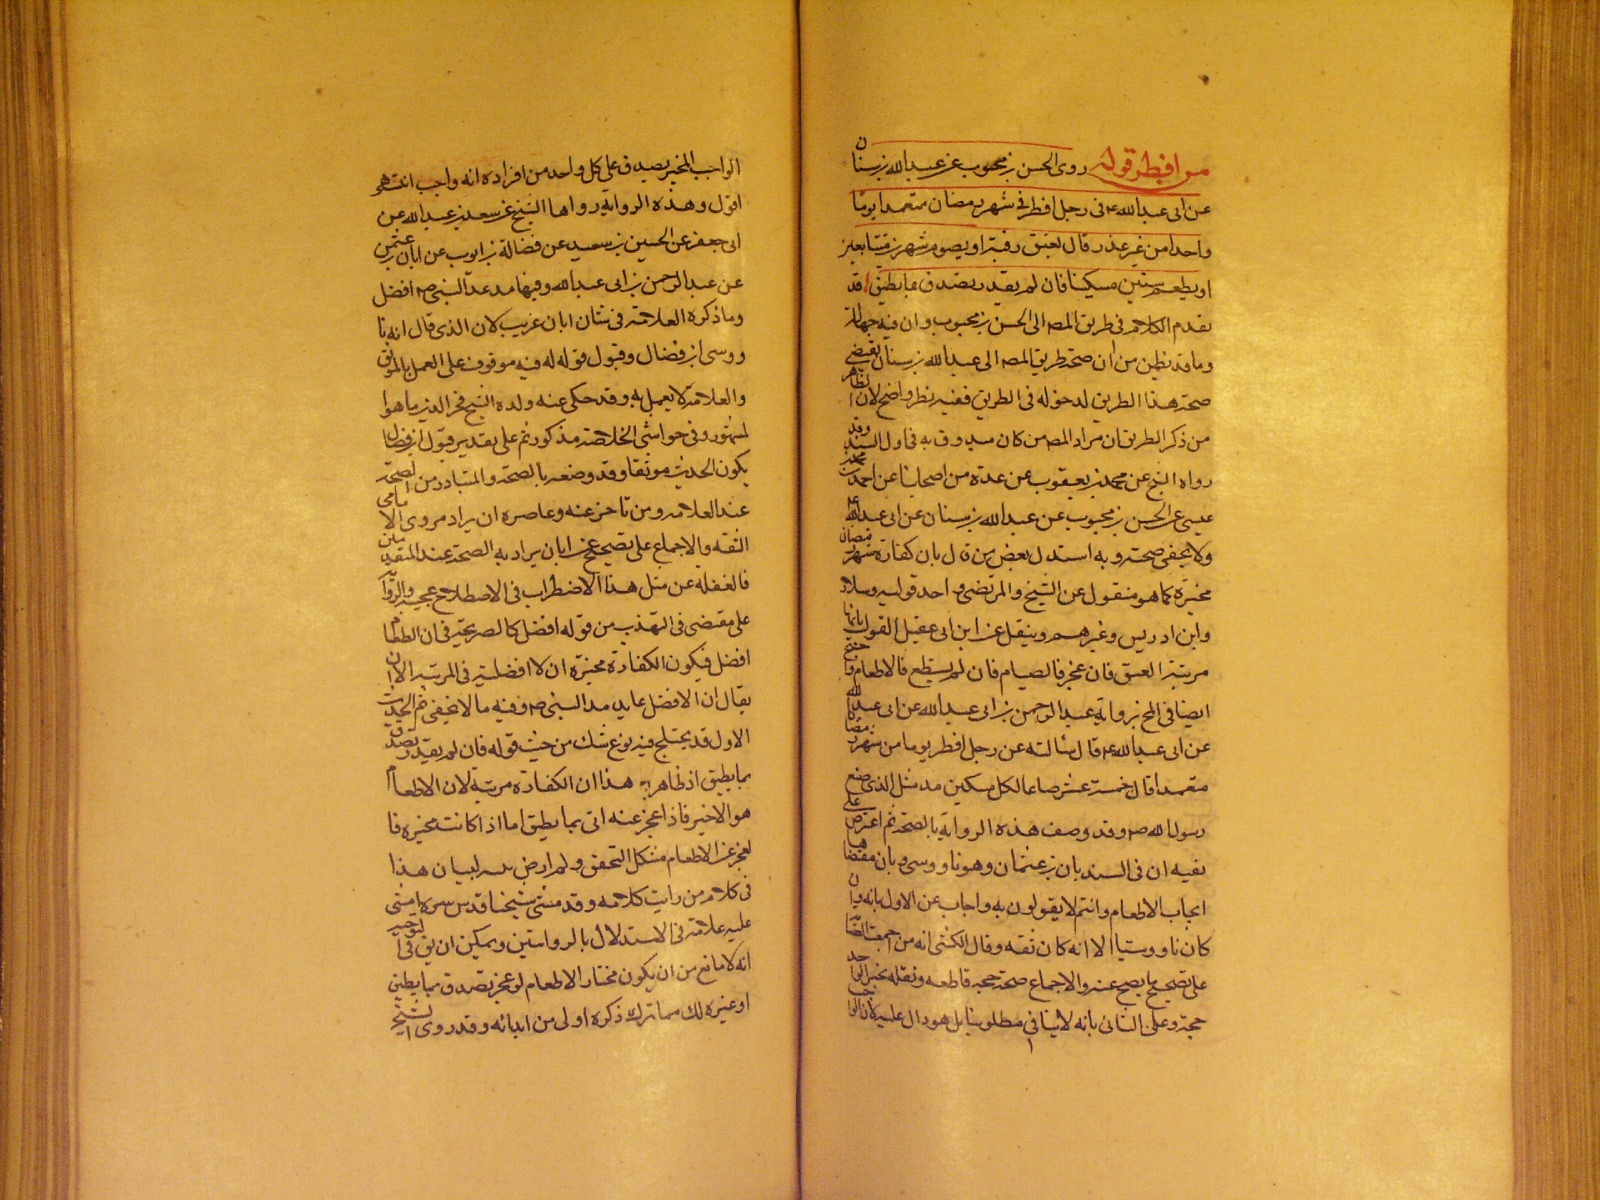 من افطر قوله روى الحسن بن محبوب عن عبد الله بن سنان
عن ابى عبد الله ع فى رجل افطر فى شهر رمضان متعمدا يوما
واحدا من غير عذر قال يعتق رقبة او يصوم شهرين متتابعين
او يطعم ستين مسكينا فان لم يقدر تصدق بما يطيق قد
تقدم الكلام فى طريق المصـ الى الحسن بن محبوب وان فيه جهالة
وما قد يظن من ان صحة طريق المصـ الى عبد الله بن سنان يقتضى
صحة هذا الطريق لدخوله فى الطريق ففيه نظر واضح لان الظاهر
من ذكر الطريق ان مراد المصـ من كان مبدوق به فى اول السند وقد
رواه الشيخ عن محمد بن يعقوب عن عدة من اصحابنا عن احمد بن محمد بن
عيسى عن الحسن بن محبوب عن عبد الله بن سنان عن ابى عبد الله ع
ولا يخفى صحته وبه استدل بعض من قال بان كفارة شهر رمضان
مخيرة كما هو منقول عن الشيخ والمرتضى فى احد قوليه وسلار
وابن ادريس وغيرهم وينقل عن ابن ابى عقيل القول بانها
مرتبة العتق فان عجز فالصيام فان لم يستطع فالاطعام
ايضا فى المخ برواية عبد الرحمن بن ابى عبد الله عن ابى عبد الله
عن ابى عبد الله ع قال سالته عن رجل افطر يوما من شهر رمضان
متعمدا قال خمسة عشر صاعا لكل مسكين مد مثل الذى صنع
رسول الله ص وقد وصف هذه الرواية بالصحة ثم اعترض على
نفسه ان فى السند ابان بن عثمان وهو ناووسى وبان مقتضاها
ايجاب الاطعام وانتم لا يقولون به واجاب عن الاول بانه وان
كان ناووسيا الا انه كان ثقه وقال الكشى انه من اجمعت العصابة
على تصحيح ما يصح عنه والاجماع حجة قاطعه ونقله بخبر الواحد
حجة وعلى الثانى بانه لا ينافى مطلوبنا بل هو دال عليه لان الواجب
الواجب المخير يصدق على كل واحد من افراده انه واجب انتهى
اقول وهذه الرواية رواها الشيخ عن سعد بن عبد الله عن
ابى جعفر عن الحسين بن سعيد عن فضالة بن ايوب عن ابان بن عثمن
عن عبد الرحمن بن ابى عبد الله وفيها مد مد النبى ص افضل
وما ذكره العلامة فى شان ابان غريب لان الذى قال انه نا
ووسى ابن فضال وقبول قوله له فيه موقوف على العمل بالموثق
والعلامة لا يعمل به وقد حكى عنه ولده الشيخ فخر الدين ما هو ا
لمشهور وفى حواشى الخلاصة مذكور ثم على تقدير قبول ابن فضال
يكون الحديث موثقا وقد وصفه بالصحة والمتبادر من الصحة
عند العلامه ومن تاخر عنه وعاصره ان يراد مروى الامامى
الثقه والاجماع على تصحيح عن ابان يراد به الصحة عند المتقدمين
فالغفله عن مثل هذا الاضطراب فى الاصطلاح عجيبه والرواية
على مقتضى فى التهذيب من قوله افضل كالصريحة فى ان الطعام
افضل فيكون الكفارة مخيرة ان لا افضلية فى المرتبة الا ان
يقال ان الافضل عايد مد النبى ص وفيه ما لا يخفى ثم الحديث
الاول قد يختلج فيه نوع شك من حيث قوله فان لم يقدر تصدق
بما يطيق اذ ظاهر هذا ان الكفارة مرتبة لان الاطعام
هو الاخير فاذا عجز عنه اتى بما يطيق اما اذا كانت مخيرة فا
لعجز عن الاطعام مشكل التحقق ولم ار لبيان هذا
فى كلام من رايت كلامه وقد مشى شيخنا قدس سره ما مشى
عليه علامة فى الاستدلال بالروايتين ويمكن ان يق فى التوجيه
انه لا مانع من ان يكون مختار الاطعام لو عجز تصدق بما يطيق
او غيره لك مما ترك ذكره اولى من ابدائه وقد روى الشيخ